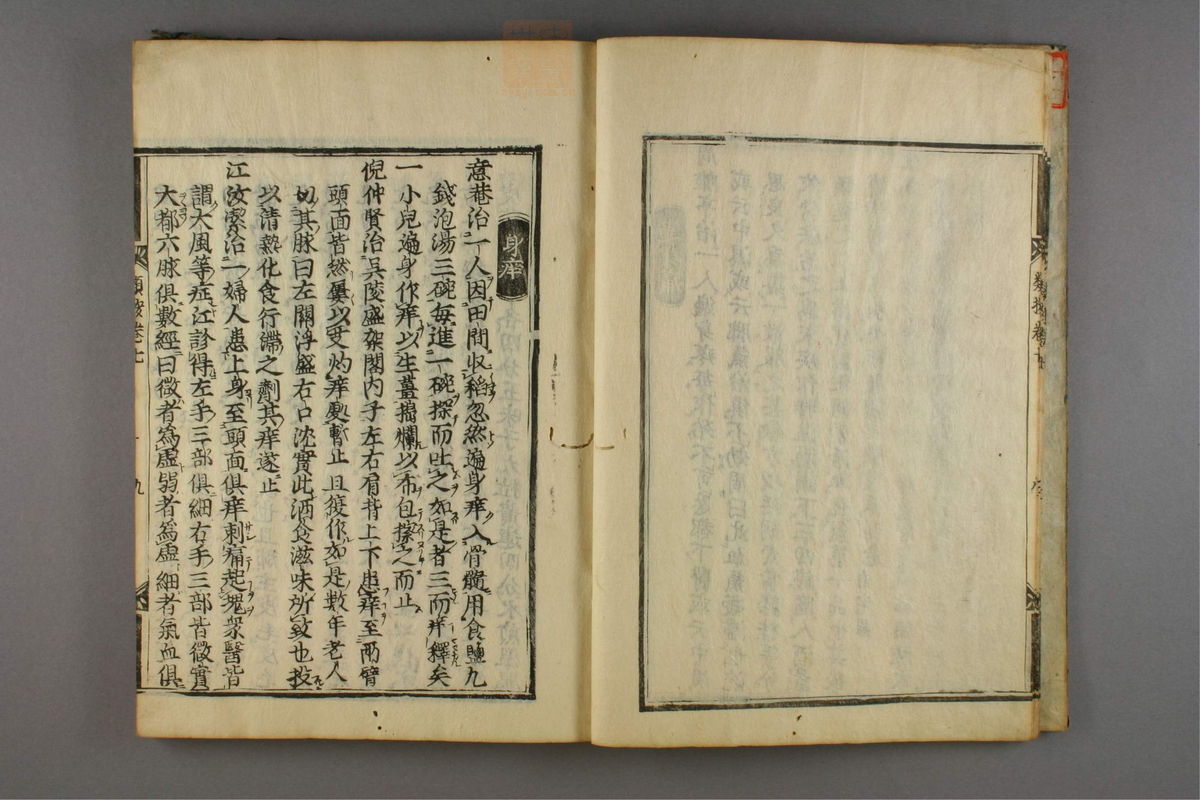 身痒
意菴治一人因田間収稻忽然遍身痒入骨髓用食鹽九
錢泡湯三碗每進一碗探而吐之如是者三而痒釋矣
一小兒遍身作痒以生薑搗爛以布包擦之而止
倪仲賢治吳陵盛架閣内子左右肩背上下患痒至兩臂
頭面皆然屢以艾灼痒處暫止且復作如是數年老人
切其脉曰左關浮盛右口沈實此酒食滋味所致也投
以清熱化食行滯之劑其痒遂止
江汝潔治一婦人患上身至頭面俱痒刺痛起塊衆醫皆
謂大風等症江診得左手三部俱細右手三部皆微實
大都六脉俱數經曰微者為虛弱者為虛細者氣血俱
類案卷七
十九